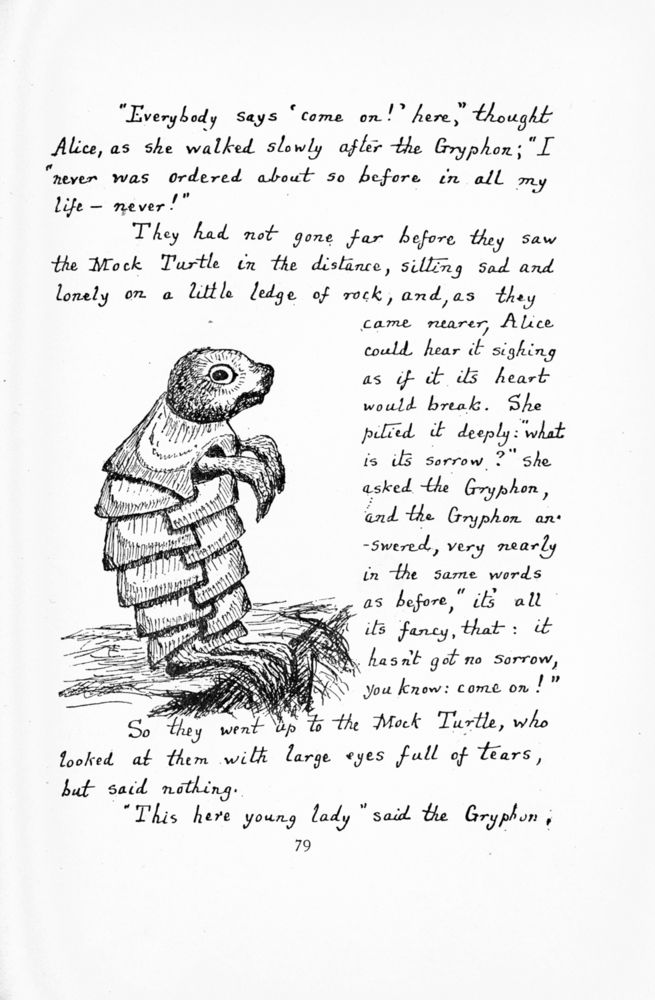 "Everybody says 'come on!' here," thought
Alice, as she walked slowly after the Gryphon; "I
"never was ordered about so before in all my
life – never!"
They had not gone far before they saw
the Mock Turtle in the distance, sitting sad and
lonely on a little ledge of rock, and, as they
came nearer, Alice
could hear it sighing
as if it its heart
would break. She
pitied it deeply: "what
is its sorrow?" she
asked the Gryphon,
and the Gryphon an-
-swered, very nearly
in the same words
as before, "it's all
its fancy, that: it
hasn't got no sorrow,
you know: come on!"
So they went up to the Mock Turtle, who
looked at them with large eyes full of tears,
but said nothing.
"This here young lady" said the Gryphon,
79